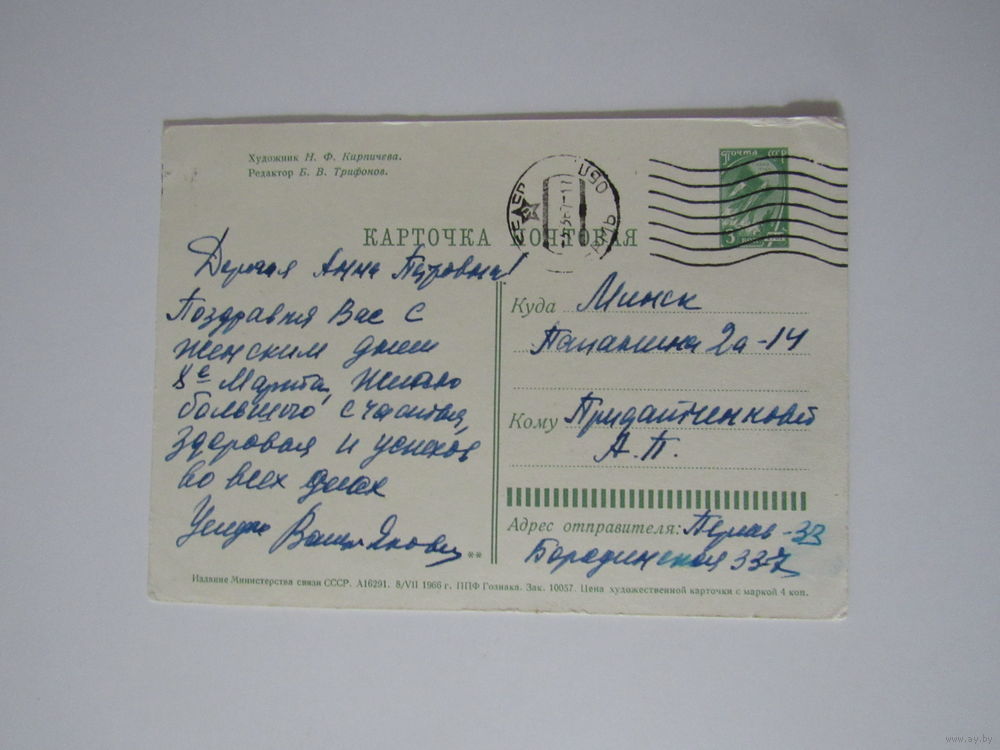 Художник Н. Ф. Кирпичева.
Редактор Б. В. Трифонов.
ПОЧТА СССР
КАРТОЧКА ПОЧТОВАЯ
Дорогая Анна Петровна!
Поздравляя Вас с
женским днем
8е Марта, желаю
большого счастья,
здоровья и успехов
во всех делах
Куда Минск
Папанина 2а-14
Кому Придатченковой
А.П.
Адрес отправителя: Пермь-33
Бородинская 33-7
**
Издание Министерства связи СССР. А16291. 8/VII 1966 г. ППФ Гознака. Зак. 10057. Цена художественной карточки с маркой 4 коп.
www.ay.by